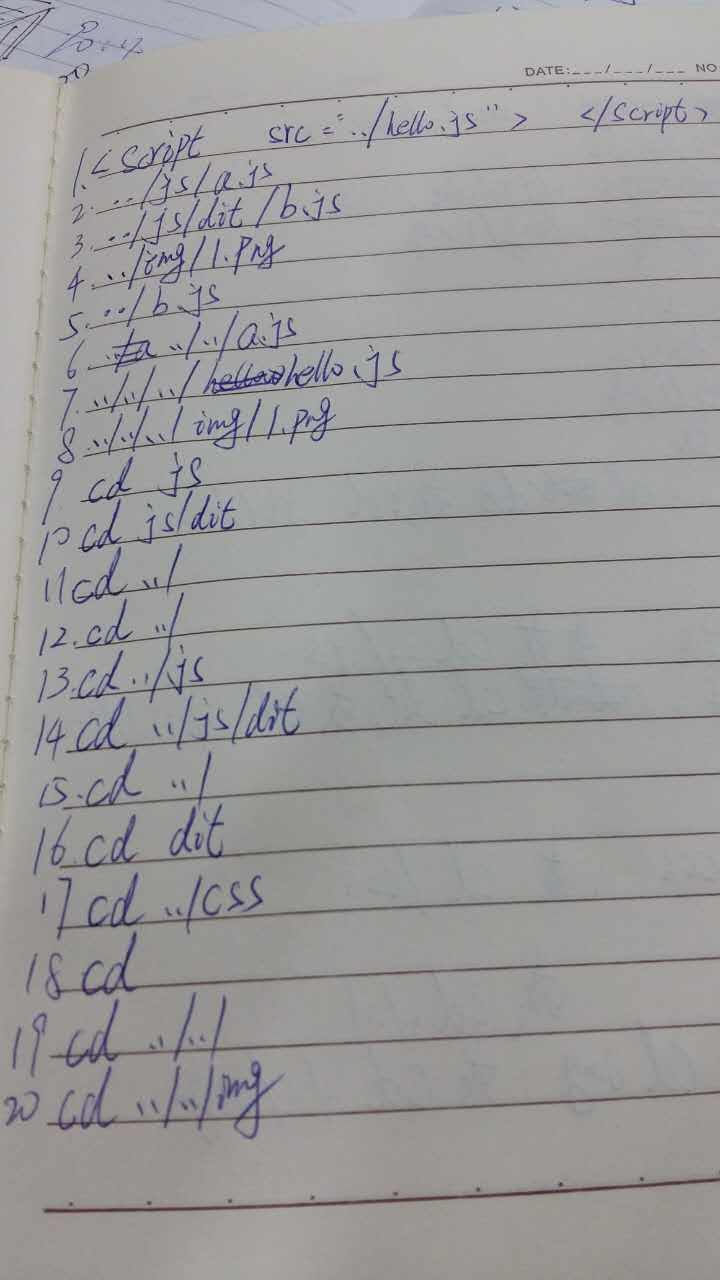 20
DATE:___/___/___ NO
1.<script src="../hello.js"> </script>
2. ../js/a.js
3. ../js/dit/b.js
4. ../img/1.png
5. ../b.js
6 ../../a.js
7. ../../../hello.js
8 ../../../img/1.png
9 cd js
10 cd js/dit
11 cd ../
12. cd ../
13. cd ../js
14 cd ../js/dit
15. cd ../
16. cd dit
17 cd ../css
18 cd
19 cd ../../
20 cd ../../img